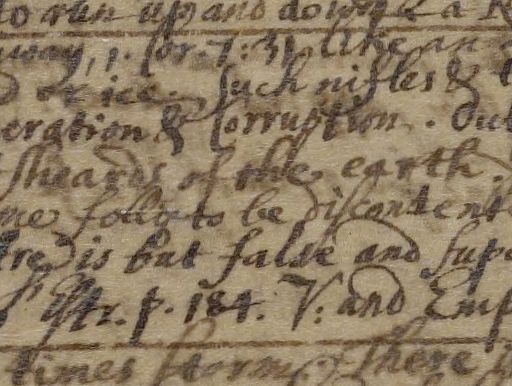 to run up and downe a
way, 1. Cor. 7: 31 like an
or ice. Such nifles &
eration & Corruption. Out
shuards of the earth.
me folly to be discontent
is but false and sup
Str. p. 184. V: and Emp
times storm, there